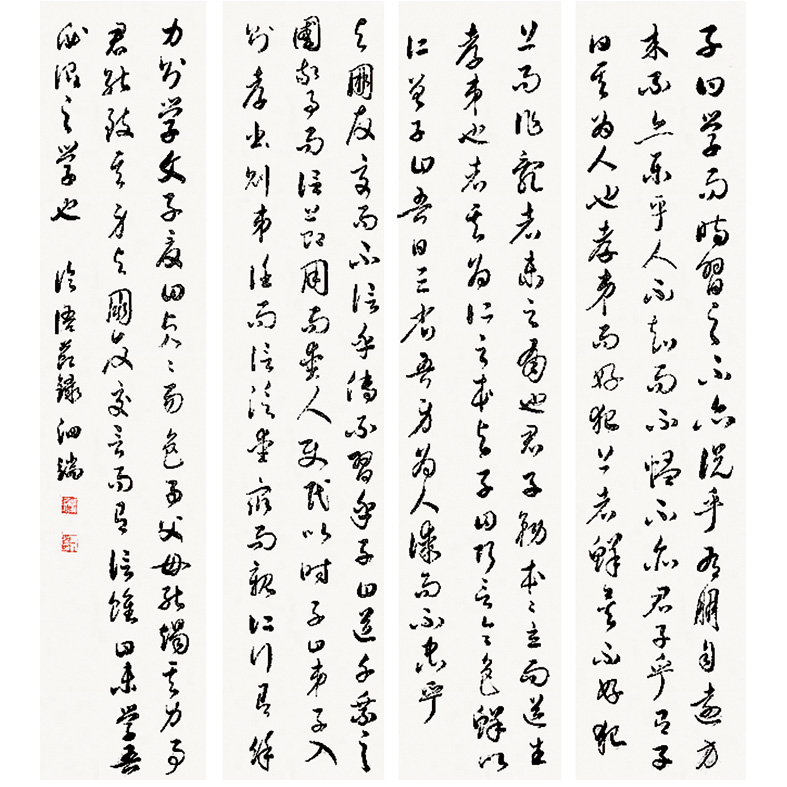 子曰學而時習之不亦說乎有朋自遠方
來不亦樂乎人不知而不慍不亦君子乎有子
曰其為人也孝弟而好犯上者鮮矣不好犯
上而作亂者未之有也君子務本〻立而道生
孝弟也者其為仁之本與子曰巧言令色鮮矣
仁曾子曰吾日三省吾身為人謀而不忠乎
與朋友交而不信乎傳不習乎子曰道千乘之
國敬事而信節用而愛人使民以時子曰弟子入
則孝出則弟謹而信汎愛眾而親仁行有餘
力則學文子夏曰賢〻易色事父母能竭其力事
君能致其身與朋友交言而有信雖曰未學吾
必謂之學也 論語節錄